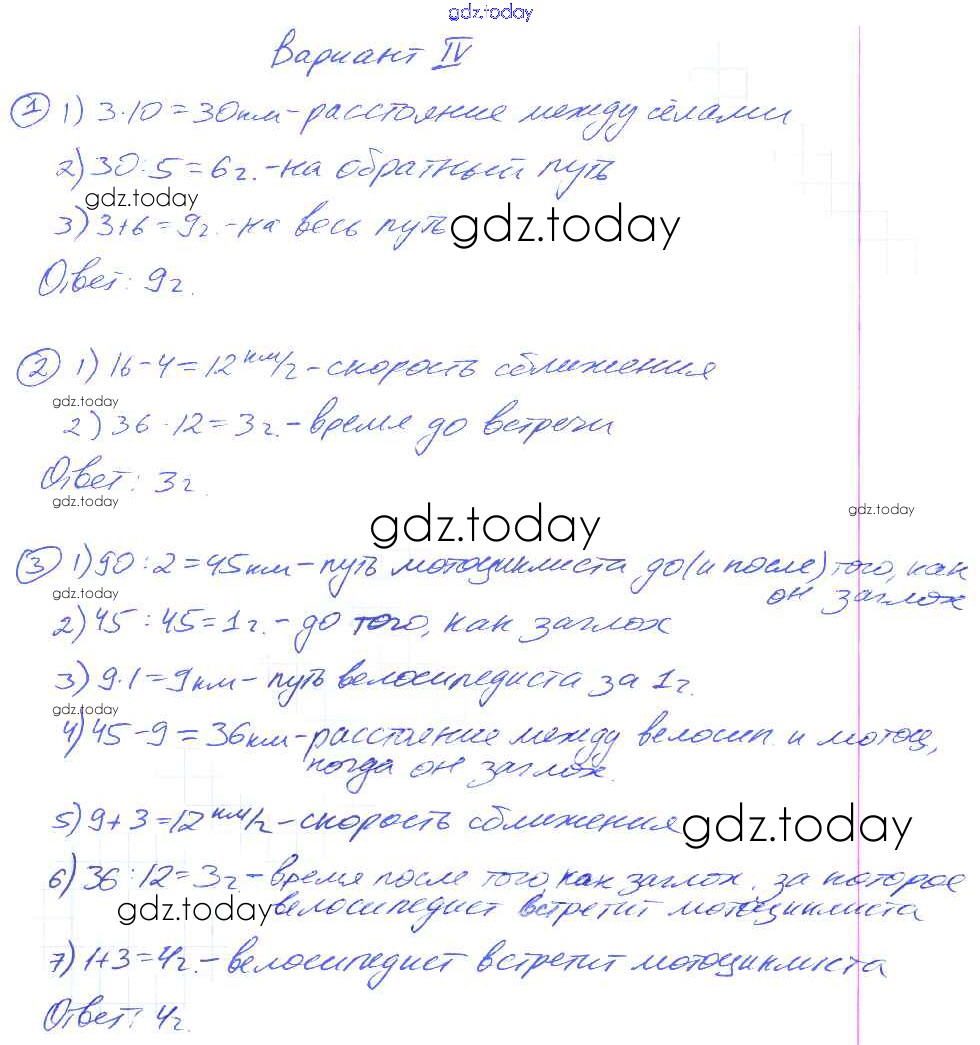 gdz.today
Вариант IV
① 1) 3·10=30км-расстояние между сёлами
2) 30:5=6г.-на обратный путь
gdz.today
3) 3+6=9г.-на весь путь gdz.today
Ответ: 9г.
② 1) 16-4=12км/г-скорость сближения
gdz.today
2) 36:12=3г.-время до встречи
Ответ: 3г.
gdz.today
gdz.today gdz.today
③ 1) 90:2=45км-путь мотоциклиста до(и после) того, как
он заглох
gdz.today
2) 45:45=1г.-до того, как заглох
3) 9·1=9км-путь велосипедиста за 1г.
gdz.today
4) 45-9=36км-расстояние между велосип. и мотоц,
когда он заглох.
5) 9+3=12км/г-скорость сближения gdz.today
6) 36:12=3г.-время после того, как заглох, за которое
gdz.today велосипедист встретит мотоциклиста
7) 1+3=4г.-велосипедист встретит мотоциклиста
Ответ: 4г.